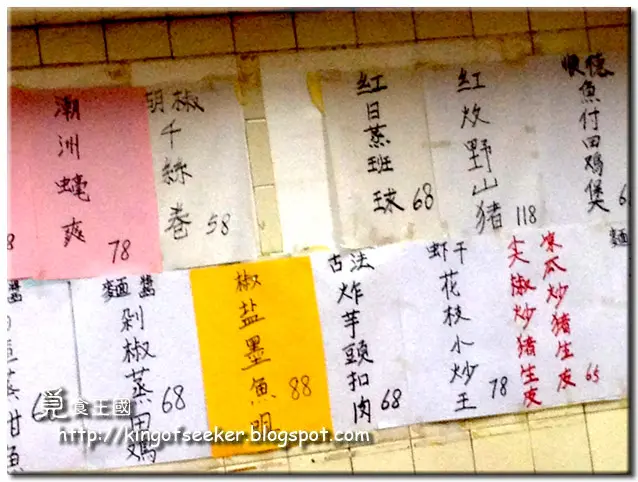 潮洲蠔爽
78
胡椒
千絲卷
58
紅日蒸班球
68
紅炆野山猪
118
順德
魚付田鸡煲
麵醬
剁椒蒸田鸡
68
椒盐墨魚
88
古法
炸芋頭扣肉
68
虾干
花枝小炒王
78
尖椒炒猪生皮
凉瓜炒猪生皮
65
麵
醬
覓食王國
http://kingofseeker.blogspot.com